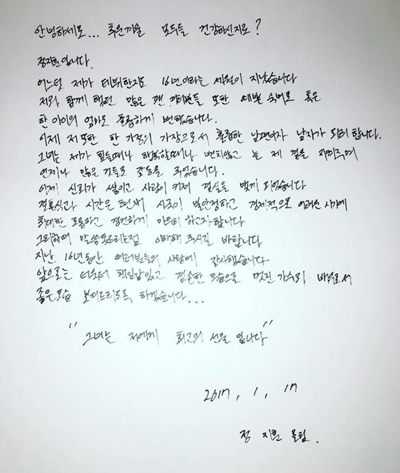 안녕하세요... 추운겨울 모두들 건강하신지요?
정지훈입니다.
어느덧 제가 데뷔한지도 16년이라는 세월이 지났습니다
저와 함께 했던 많은 팬 여러분들 또한 숙녀로 혹은
한 아이의 엄마로 훌륭하게 변했습니다.
이제 저 또한 한 가정의 가장으로서 훌륭한 남편이자 남자가 되려 합니다.
그녀는 제가 힘들때나 행복할때나 변치않고 늘 제 곁을 지켜주며
언제나 많은 것들로 감동을 주었습니다.
이제 신뢰가 쌓이고 사랑이 커져 결실을 맺게 되었습니다
결혼식과 시간은 현재 시국이 불안정하고 경제적으로 어려운 시기에
최대한 조용하고 경건하게 하고자합니다
그리하여 말씀 못드리는점 이해해 주시길 바랍니다.
지난 16년동안 여러분들의 사랑에 감사했습니다
앞으로는 더욱더 책임감있고 겸손한 모습으로 멋진 가수와 배우로서
좋은모습 보여드리도록 하겠습니다...
"그녀는 저에게 최고의 선물 입니다"
2017, 1, 17
정 지훈 올림.